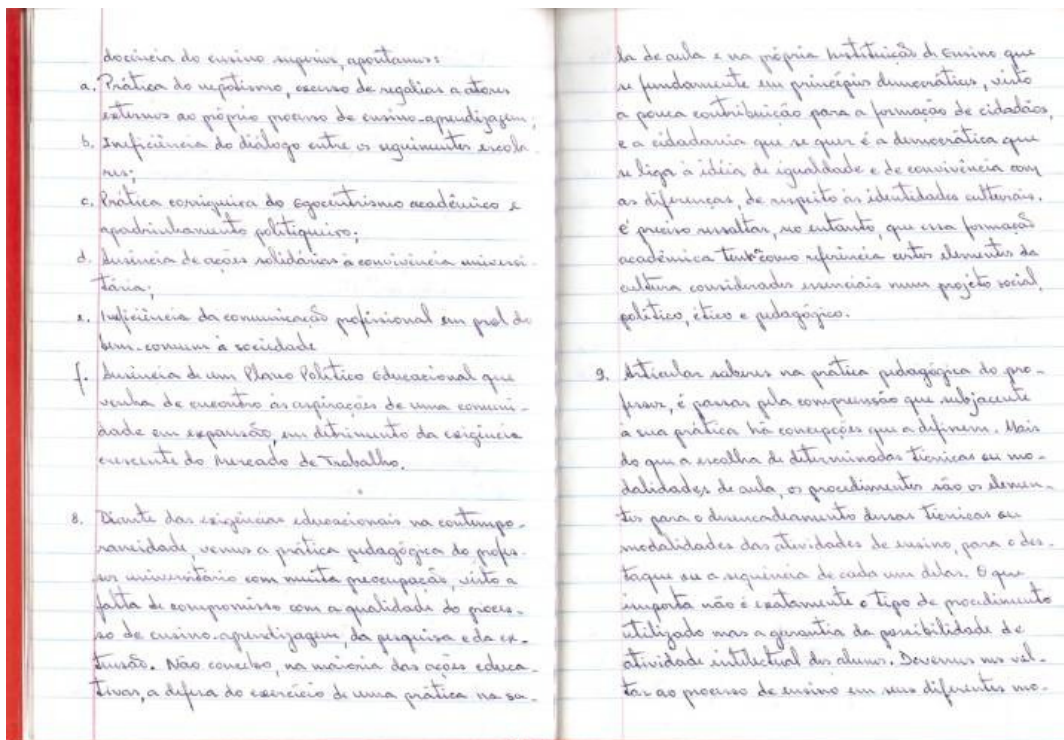 docência do ensino superior, apontamos:
a. Prática do nepotismo, excesso de regalias a atores
externos ao próprio processo de ensino-aprendizagem;
b. Ineficiência do diálogo entre os seguimentos escola-
res;
c. Prática corriqueira do egocentrismo acadêmico e
apadrinhamento politiqueiro;
d. Ausência de ações solidárias à convivência universi-
tária;
e. Ineficiência da comunicação profissional em prol do
bem-comum à sociedade
f. Ausência de um Plano Político Educacional que
venha de encontro às aspirações de uma comuni-
dade em expansão, em detrimento da exigência
crescente do Mercado de Trabalho.
8. Diante das exigências educacionais na contempo-
raneidade, vemos a prática pedagógica do profes-
sor universitário com muita preocupação, visto a
falta de compromisso com a qualidade do proces-
so de ensino-aprendizagem, da pesquisa e da ex-
tensão. Não concebo, na maioria das ações educa-
tivas, a defesa do exercício de uma prática na sa-
la de aula e na própria Instituição de Ensino que
se fundamente em princípios democráticos, visto
a pouca contribuição para a formação de cidadãos,
e a cidadania que se quer é a democrática que
se liga à idéia de igualdade e de convivência com
as diferenças, de respeito às identidades culturais.
É preciso ressaltar, no entanto, que essa formação
acadêmica tem como referência certos elementos da
cultura considerados essenciais num projeto social,
político, ético e pedagógico.
9. Articular saberes na prática pedagógica do pro-
fessor, é passar pela compreensão que subjacente
à sua prática há concepções que a definem. Mais
do que a escolha de determinadas técnicas ou mo-
dalidades de aula, os procedimentos são os elemen-
tos para o desencadeamento dessas técnicas ou
modalidades das atividades de ensino, para o des-
taque ou a sequência de cada um delas. O que
importa não é exatamente o tipo de procedimento
utilizado mas a garantia da possibilidade de
atividade intelectual dos alunos. Devemos nos vol-
tar ao processo de ensino em seus diferentes mo-